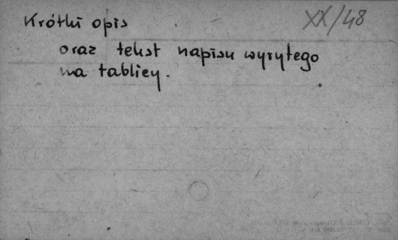 XX/48
Krótki opis
oraz tekst napisu wyrytego
na tablicy.